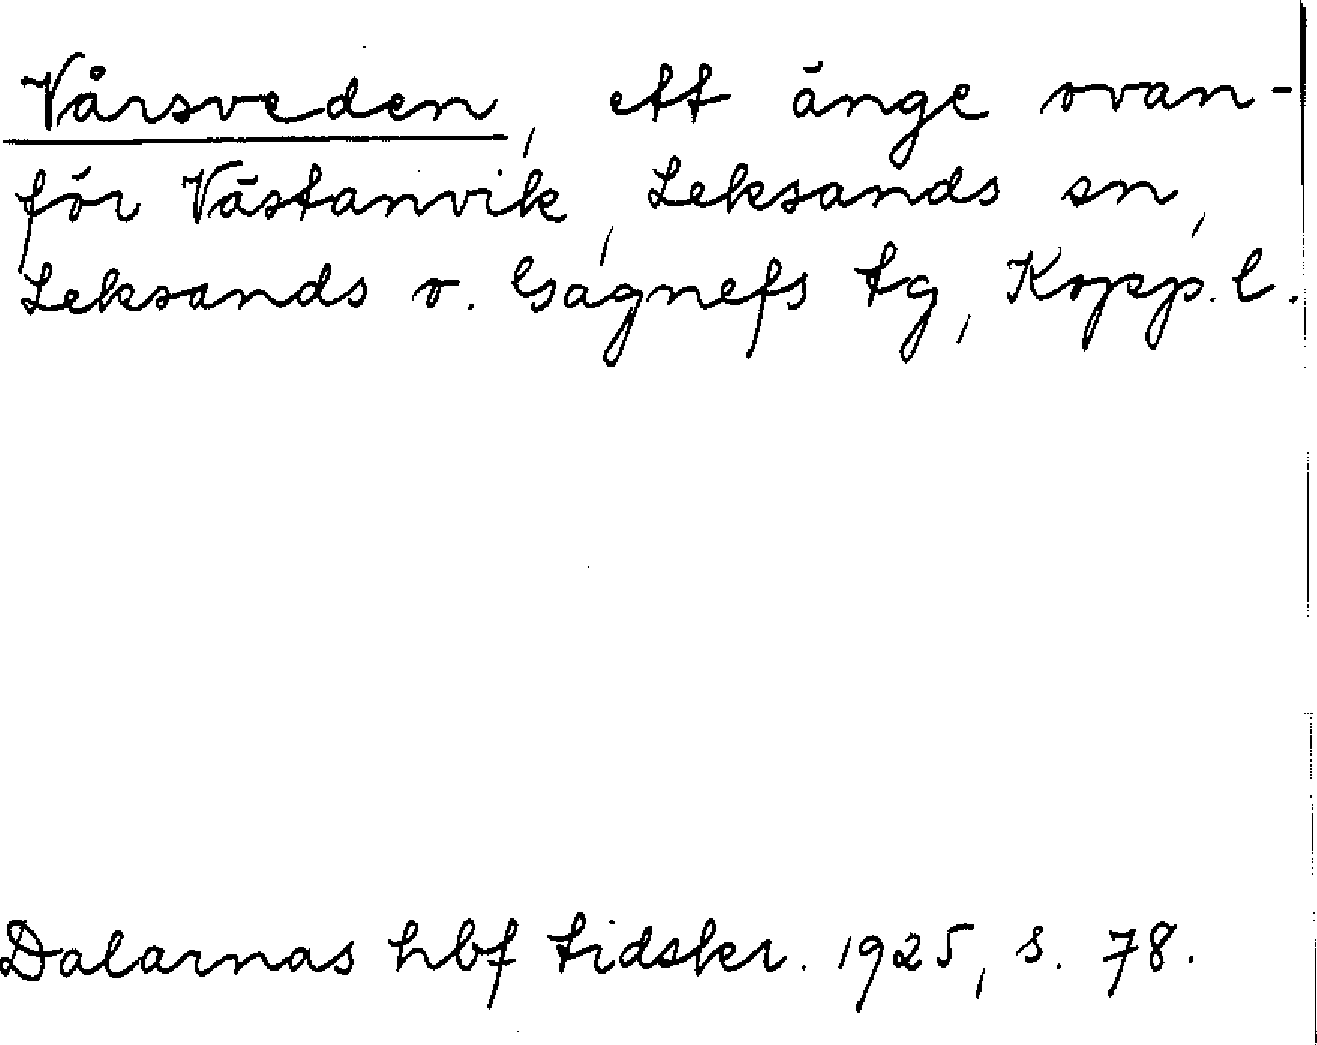 Vårsveden, ett änge ovan-
för Västanvik, Leksands sn,
Leksands o. Gagnefs tg, Kopp. l.
Dalarnas hbf tidskr. 1925, s. 78.